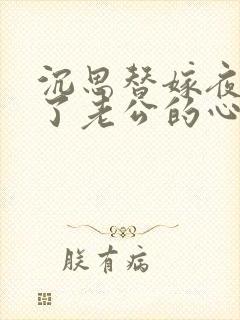 沉思替嫁夜
了老公的心
朕有病